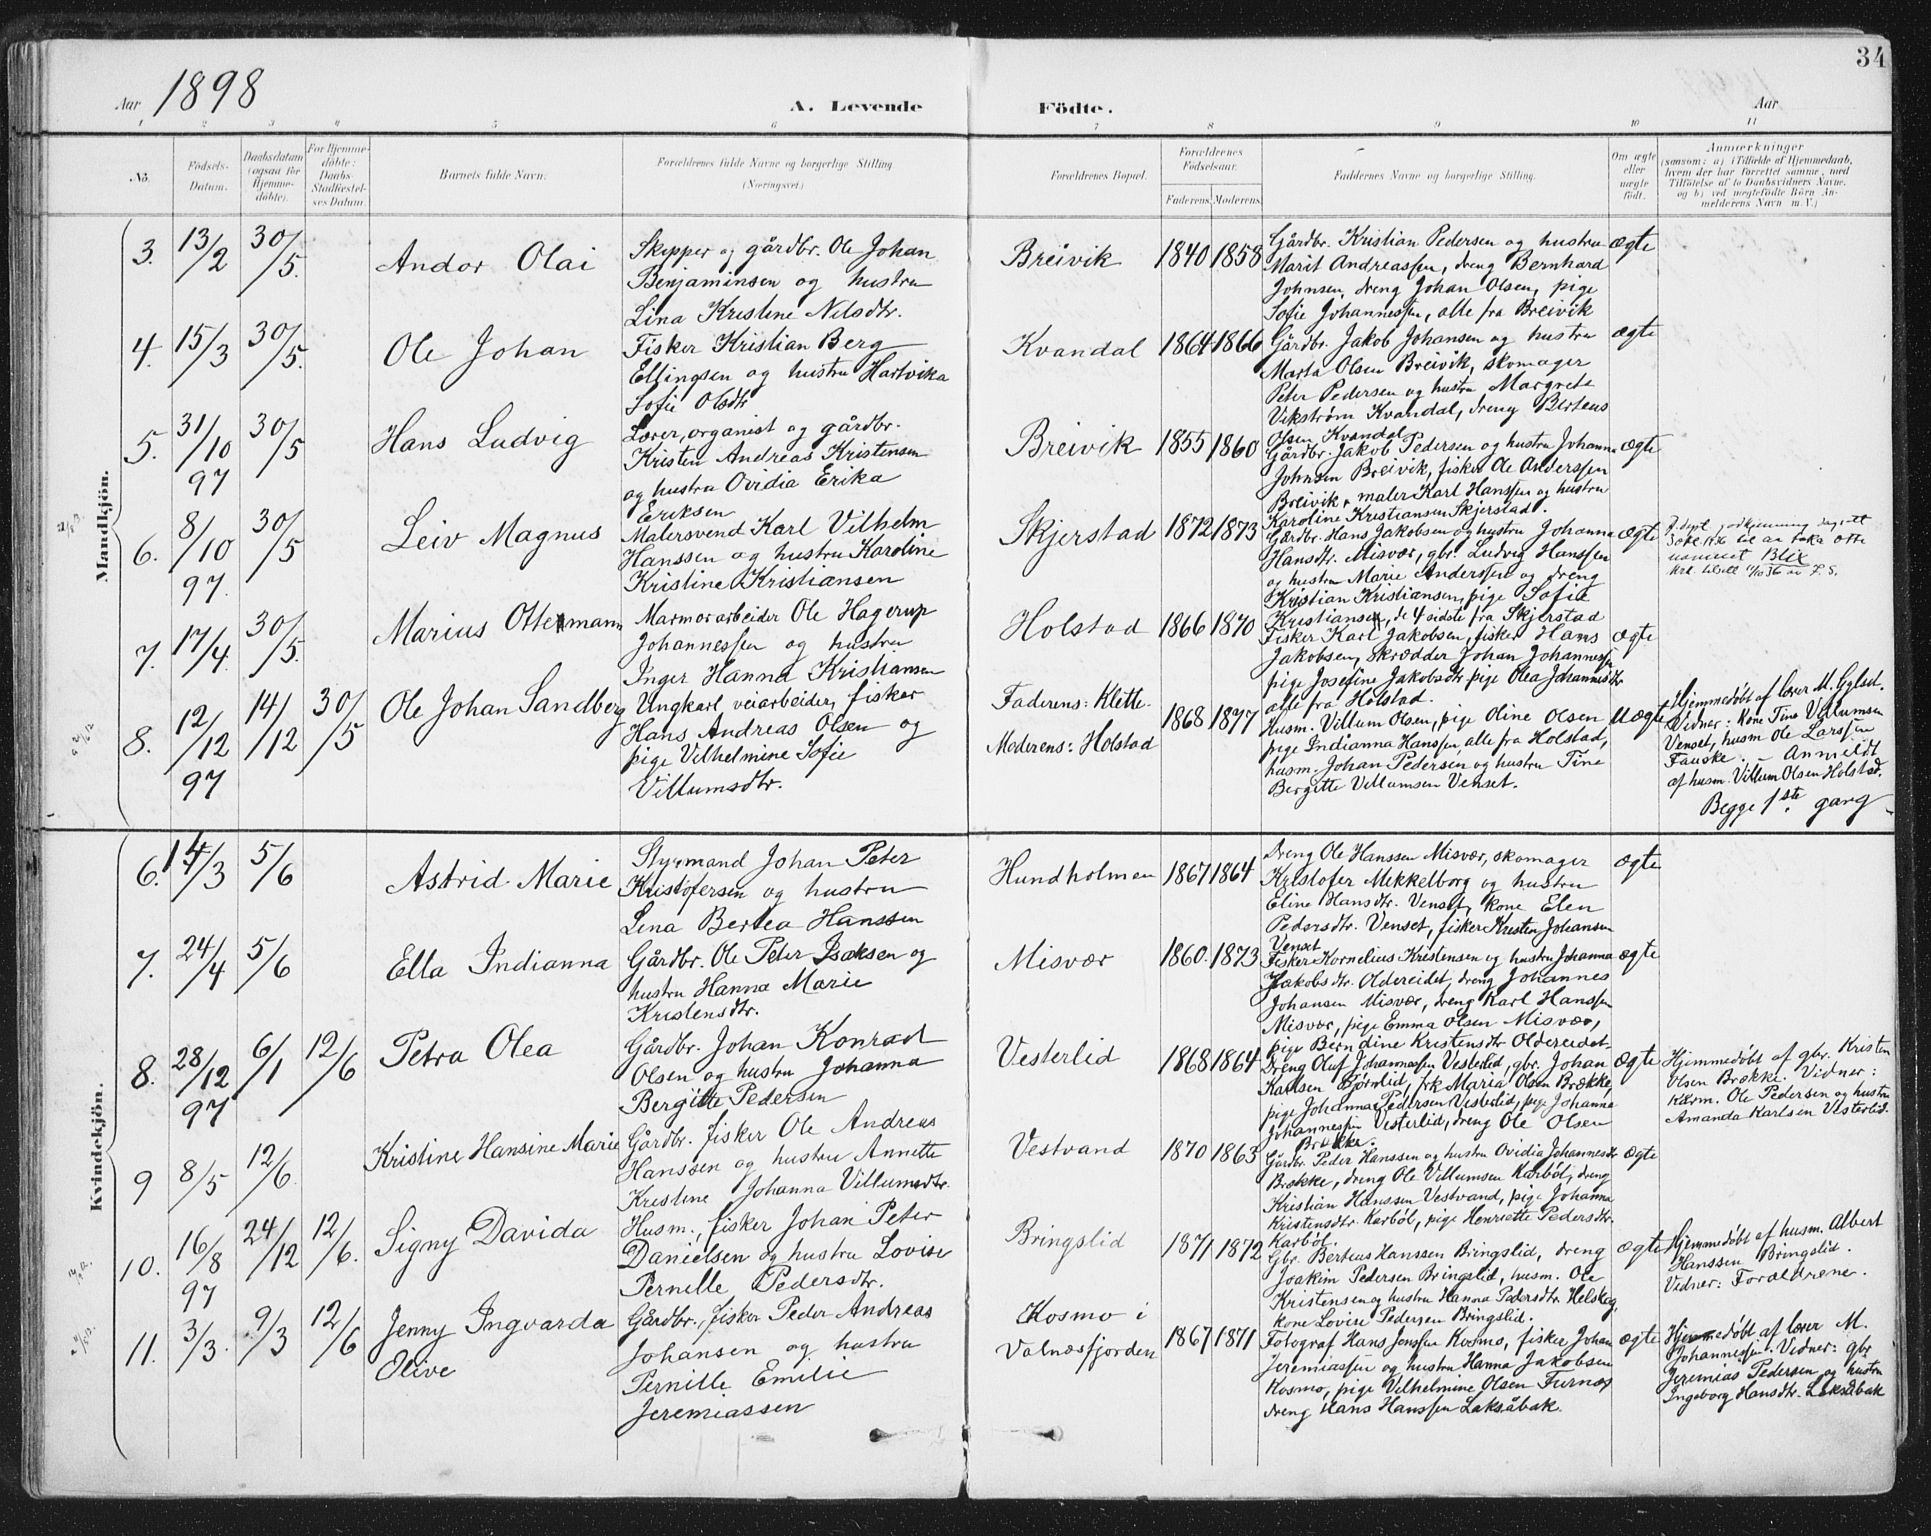 34
Aar 1898
A. Levende Födte.
Aar
1 2 3 4 5 6 7 8 9 10 11
No.
Födsels-
Datum.
Daabsdatum
(ogsaa for
Hjemme-
döbte).
For Hjemme-
döbte:
Daabs-
Stadfæstel-
ses Datum.
Barnets fulde Navn.
Forældrenes fulde Navne og borgerlige Stilling
(Næringsvei)
Forældrenes Bopæl.
Forældrenes
Födselsaar.
Faderens. Moderens.
Faddernes Navne og borgerlige Stilling.
Om ægte
eller
uægte
födt.
Anmærkninger
(saasom: a) i Tilfælde af Hjemmedaab,
hvem der har forrettet samme, med
Tilföielse af to Daabsvidners Navne,
og b) ved uægtefödte Börn An-
melderens Navn m. V.)
Mandkjön.
3. 13/2 30/5. Andor Olai
Skipper og gårdbr. Ole Johan
Benjaminsen og hustru
Lina Kristine Nilsdtr.
Breivik 1840 1858
Gårdbr. Kristian Pedersen og hustru
Marit Andreassen, dreng Bernhard
Johnsen, dreng Johan Olsen, pige
Sofie Johannessen, alle fra Breivik
ægte
4. 15/3 30/5. Ole Johan
Fisker Kristian Berg
Ellingsen og hustru Hartvika
Sofie Olsdtr
Kvandal 1864 1866
Gårdbr. Jakob Johansen og hustru
Marta Olsen Breivik, skomager
Peter Pedersen og hustru Margrete
Vikstrøm Kvandal, dreng Berteus
Olsen Kvandal
ægte
5. 31/10 97 30/5 Hans Ludvig
Lærer, organist og gårdbr.
Kristen Andreas Kristensen
og hustru Ovidia Erika
Eriksen
Breivik 1855 1860
Gårdbr. Jakob Pedersen og hustru Johanna
Johnsen Breivik, fisker Ole Anderssen
Breivik, maler Karl Hanssen og hustru
Karoline Kristiansen Skjerstad.
ægte
6. 8/10 97. 30/5 Leiv Magnus
Malersvend Karl Vilhelm
Hanssen og hustru Karoline
Kristine Kristiansen
Skjerstad 1872 1873
Gårdbr. Hans Jakobsen og hustru Johanna
Hansdtr. Misvær, gbr. Ludvig Hanssen
og hustru Marie Anderssen og dreng
Kristian Kristiansen, pige Sofie
Kristiansen, de 4 sidste fra Skjerstad
ægte
til aa taka ætte
namnet Blix
7. 17/4. 30/5. Marius Ottermann
Marmorarbeider Ole Hagerup
Johannessen og hustru
Inger Hanna Kristiansen
Holstad 1866 1870
Fisker Karl Jakobsen, fisker Hans
Jakobsen, skrædder Johan Johannessen
pige Josefine Jakobsdtr pige Olea Johannesdtr
alle fra Holstad.
ægte
8. 12/12 97 14/12 30/5 Ole Johan Sandberg
Ungkarl, veiarbeider, fisker
Hans Andreas Olsen og
pige Vilhelmine Sofie
Villumsdtr.
Faderens: Klette.
Moderens: Holstad
1868 1877
Husm. Villum Olsen, pige Oline Olsen
pige Indianna Hanssen, alle fra Holstad,
husm. Johan Pedersen og hustru Tine
Bergitte Villumsen Venset.
Uægte
Hjemmedøbt af lærer M. Gylset.
Vidner: kone Tine Villumsen
Venset, husm Ole Larssen
Fauske. – Anmeldt
af husm. Villum Olsen Holstad.
Begge 1ste gang
Kvindekjön.
6. 14/3 5/6 Astrid Marie
Styrmand Johan Peter
Kristofersen og hustru
Lina Bertea Hanssen
Hundholmen 1867 1864
Dreng Ole Hanssen Misvær, skomager
Kristofer Mikkelborg og hustru
Eline Hansdtr. Venset, kone Elen
Pedersdtr. Venset, fisker Kristen Johansen
Venset
ægte
7. 24/4 5/6 Ella Indianna
Gårdbr. Ole Peter Isaksen og
hustru Hanna Marie
Kristensdtr.
Misvær 1860. 1873
Fisker Kornelius Kristensen og hustru Johanna
Jakobsdtr. Oldereidet, dreng Johannes
Johansen Misvær, dreng Karl Hanssen
Misvær, pige Emma Olsen Misvær,
pige Berndine Kristensdtr Oldereidet.
ægte
8. 28/12 97 6/1 12/6 Petra Olea
Gårdbr. Johan Konrad
Olsen og hustru Johanna
Bergitte Pedersen
Vesterlid 1868 1864
Dreng Oluf Johannessen Vesterlid, gbr. Johan
Karlsen Bjørnlid, frk Maria Olsen Brække,
pige Johanna Pedersen Vesterlid, pige Johanna
Johannessen Vesterlid, dreng Ole Olsen
Brække.
ægte
Hjemmedøbt af gbr. Kristen
Olsen Brække. Vidner:
Kårm. Ole Pedersen og hustru
Amanda Karlsen Vesterlid.
9 8/5 12/6. Kristine Hansine Marie
Gårdbr. fisker Ole Andreas
Hanssen og hustru Annette
Kristine Johanna Villumsdtr.
Vestvand 1870 1863
Gårdbr. Peder Hanssen og hustru Ovidia Johannesdtr
Brække, dreng Ole Villumsen Karbøl, dreng
Kristian Hanssen Vestvand, pige Johanna
Kristensdtr. Karbøl, pige Henriette Pedersdtr.
Karbøl.
ægte
10. 16/8 97 24/12 12/6. Signy Davida
Husm., fisker Johan Peter
Danielsen og hustru Lovise
Pernille Pedersdtr.
Bringslid 1871 1872
Gbr. Berteus Hanssen Bringslid, dreng
Joakim Pedersen Bringslid, husm. Ole
Kristensen og hustru Hanna Pedersdtr Helskog,
kone Lovise Pedersen Bringslid.
ægte
Hjemmedøbt af husm. Albert
Hanssen Bringslid.
Vidner: Forældrene.
11. 3/3. 9/3 12/6 Jenny Ingvarda
Olive
Gårdbr., fisker Peder Andreas
Johansen og hustru
Pernille Emilie
Jeremiassen
Kosmo i
Valnæsfjorden
1867 1871
Fotograf Hans Jenssen Kosmo, fisker Johan
Jeremiassen og hustru Hanna Jakobsen
Kosmo, pige Vilhelmine Olsen Furnes
dreng Hans Hanssen Laksåbak.
ægte
Hjemmedøbt af lærer M.
Johannessen. Vidner: gbr
Jeremias Pedersen og hustru
Ingeborg Hansdtr. Laksåbak